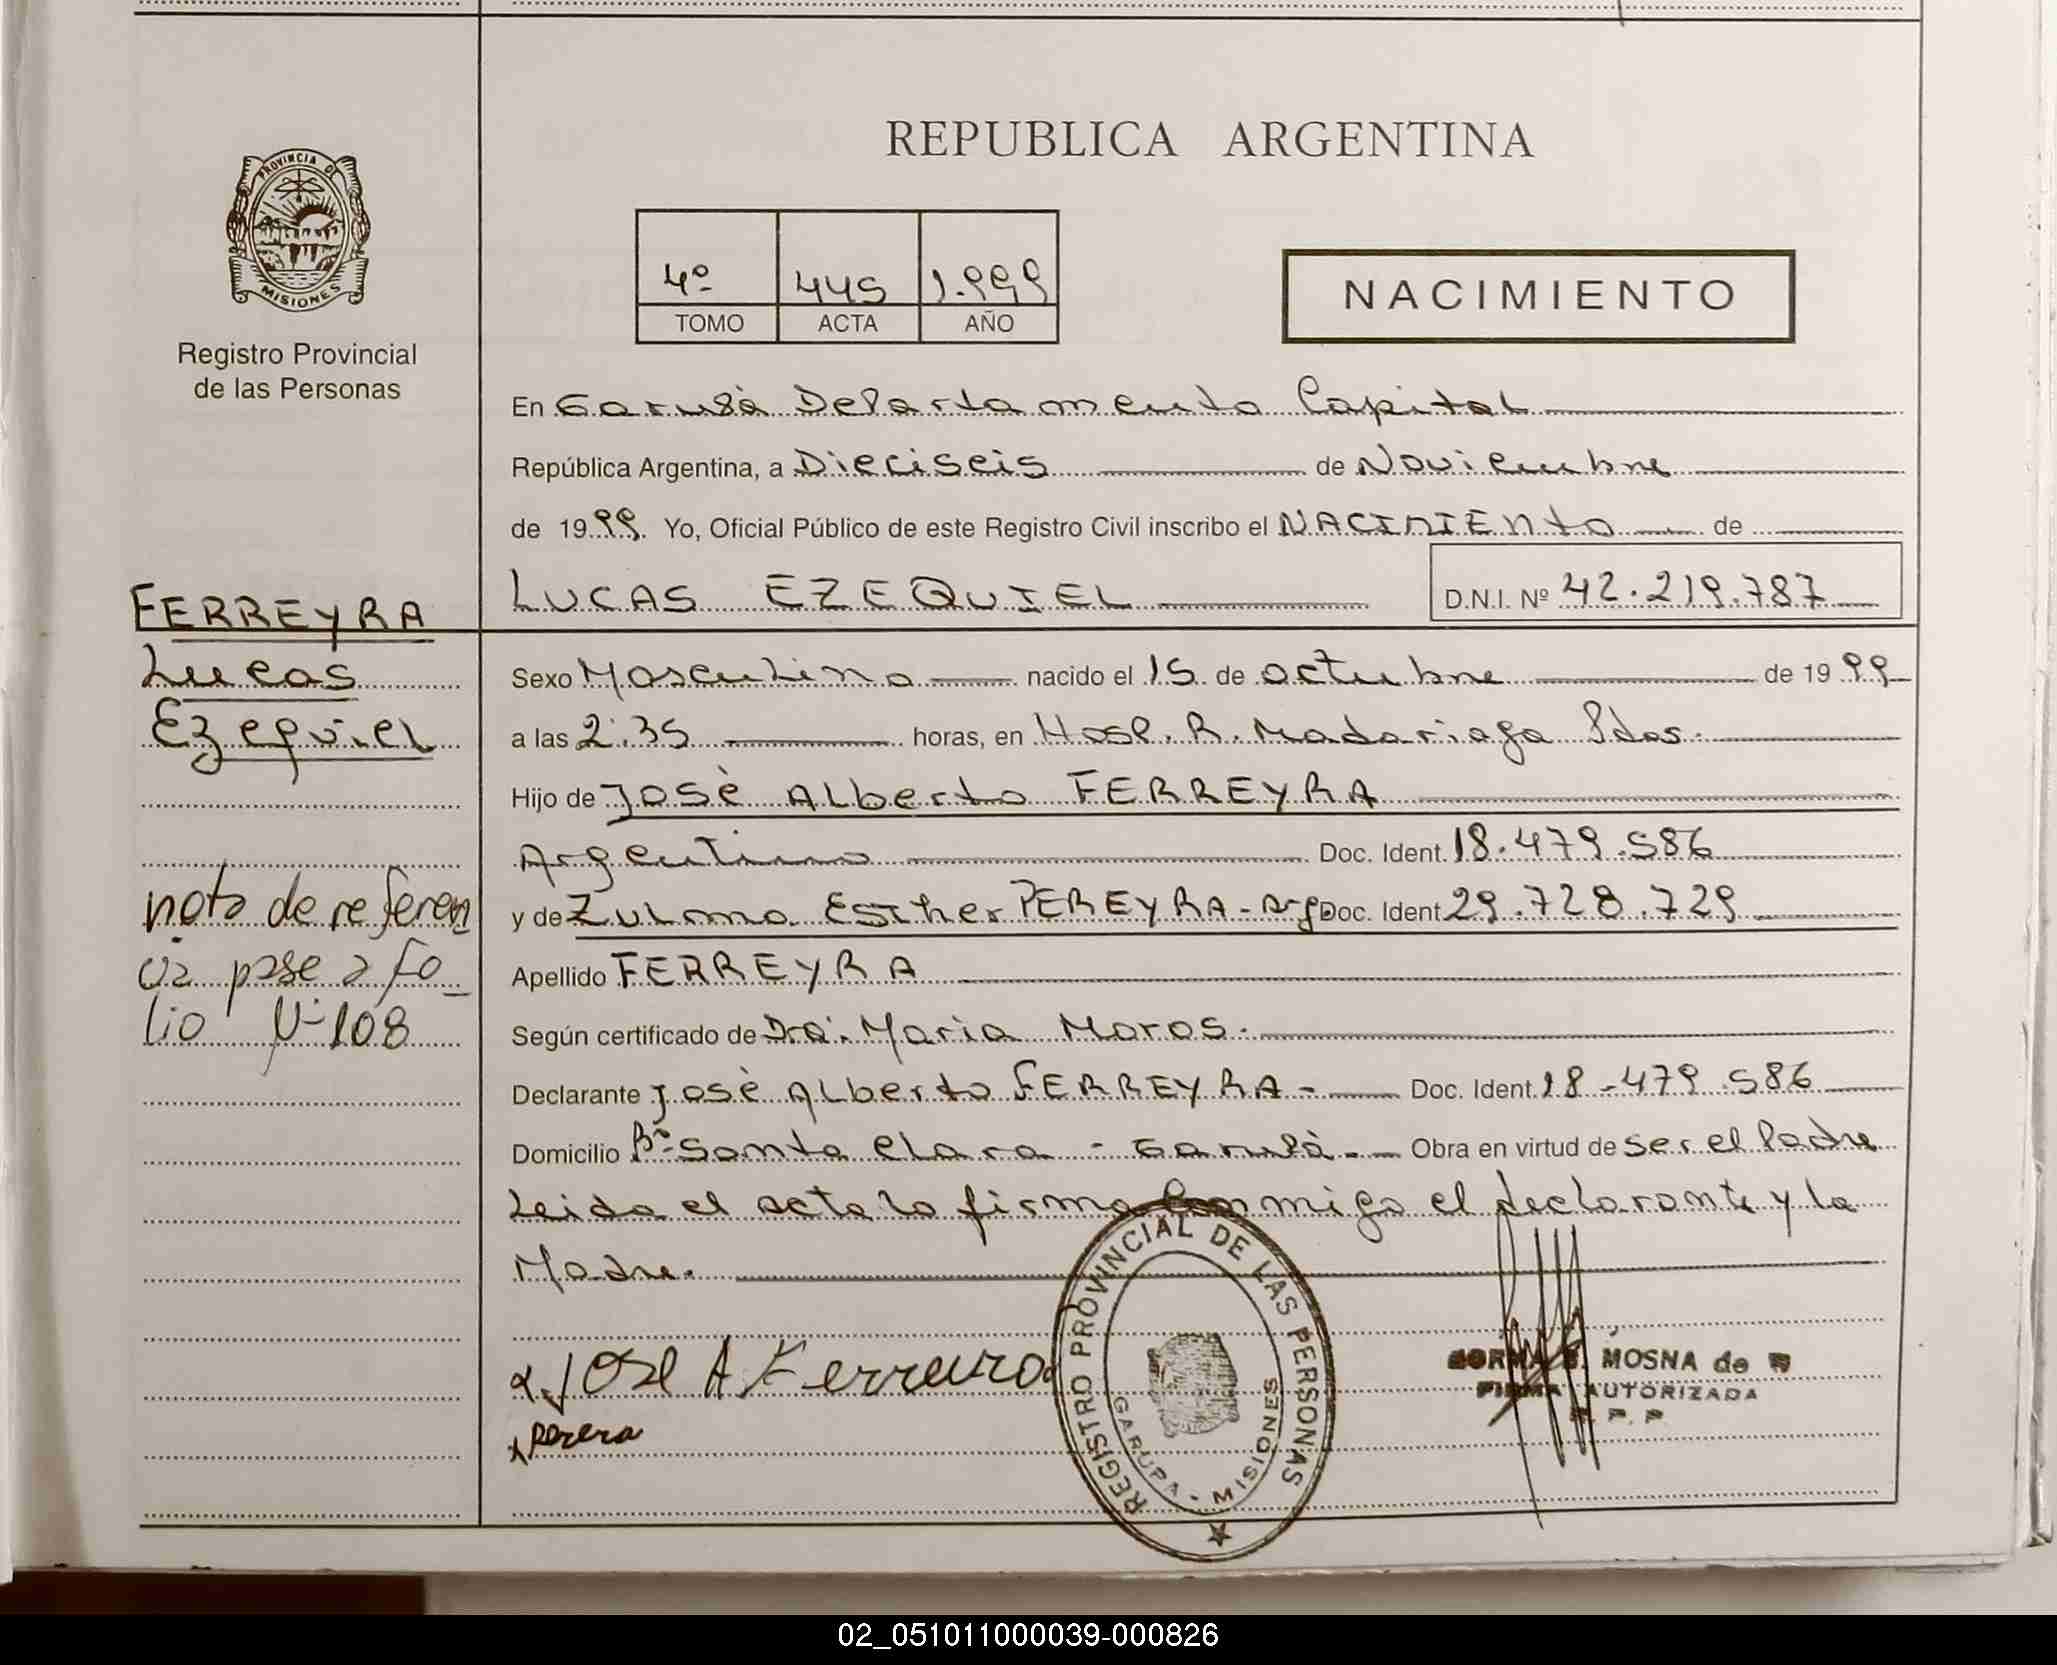 REPUBLICA ARGENTINA
PROVINCIA DE
MISIONES
Registro Provincial
de las Personas
4º 445 1.999
TOMO ACTA AÑO
NACIMIENTO
En Garupá Departamento Capital
República Argentina, a Dieciseis de Noviembre
de 1999. Yo, Oficial Público de este Registro Civil inscribo el NACIMIENto de
LUCAS EZEQUIEL D.N.I. Nº 42.219.787
FERREYRA
Lucas
Ezequiel
nota de referen
cia pase a fo_
lio Nº 108
Sexo Masculino nacido el 15 de octubre de 1999
a las 2:35 horas, en Hosp. R. Madariaga Pdas.
Hijo de José Alberto FERREYRA
Argentino Doc. Ident. 18.479.586
y de Zulma Esther PEREYRA - Arg Doc. Ident. 29.728.729
Apellido FERREYRA
Según certificado de Dra. Maria Moros.
Declarante José Alberto FERREYRA - Doc. Ident. 18-479.586
Domicilio Bº Santa Clara - Garupá. Obra en virtud de ser el Padre
Leida el acta la firma Conmigo el declarante y la
Madre.
x Jose A Ferreira
x Perera
REGISTRO PROVINCIAL DE LAS PERSONAS
GARUPA - MISIONES
MOSNA de
FIRMA AUTORIZADA
R. P. P.
02_051011000039-000826